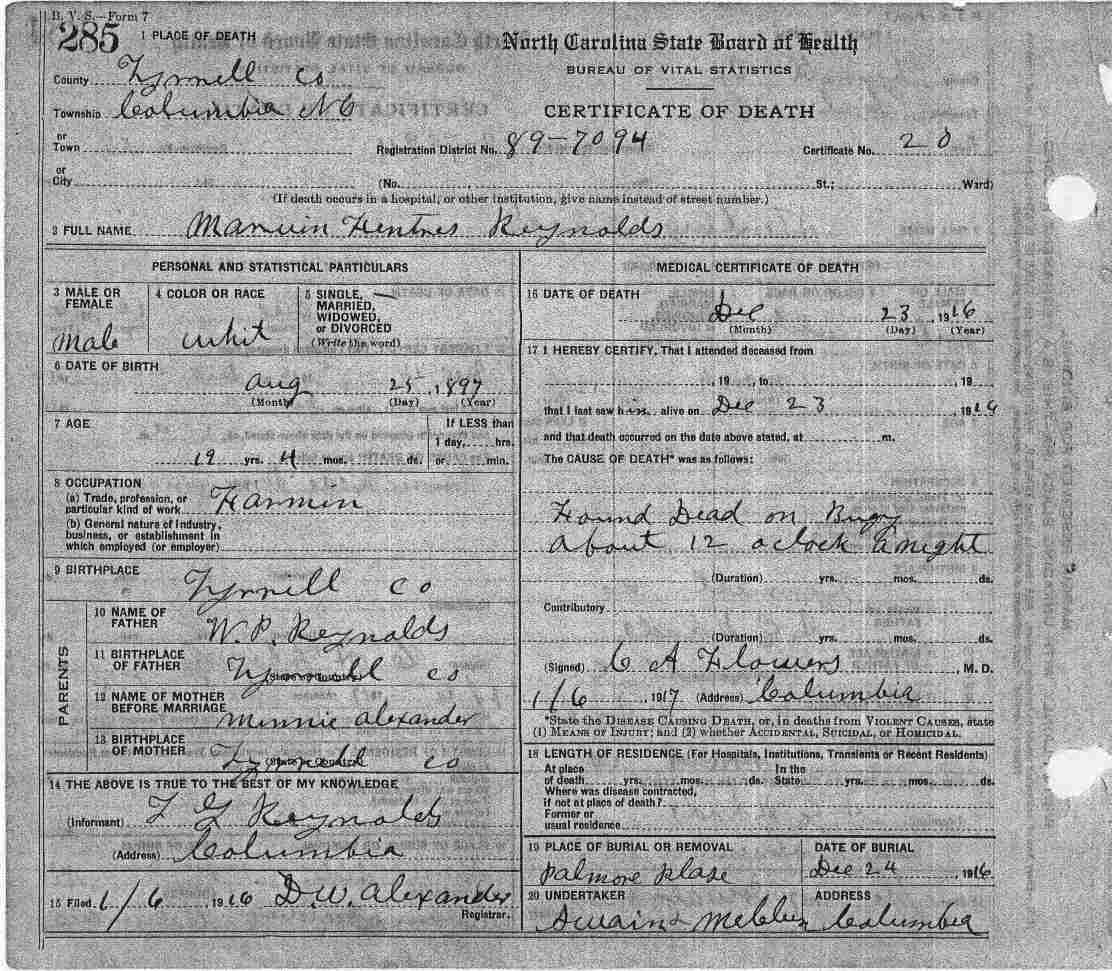 B. V. S.—Form 7
285
1 PLACE OF DEATH
North Carolina State Board of Health
BUREAU OF VITAL STATISTICS
CERTIFICATE OF DEATH
County Tyrrell Co
Township Columbia N C
or Town
Registration District No. 89-7094
Certificate No. 20
or City
(No. , St.; Ward)
(If death occurs in a hospital, or other institution, give name instead of street number.)
2 FULL NAME Reynolds
PERSONAL AND STATISTICAL PARTICULARS
3 MALE OR FEMALE
male
4 COLOR OR RACE
whit
5 SINGLE, MARRIED, WIDOWED, or DIVORCED
(Write the word)
—
6 DATE OF BIRTH
Aug 25, 1897
(Month) (Day) (Year)
7 AGE
19 yrs. 4 mos. ds.
If LESS than
1 day, hrs.
or min.
8 OCCUPATION
(a) Trade, profession, or particular kind of work
(b) General nature of industry, business, or establishment in which employed (or employer)
9 BIRTHPLACE
Tyrrell Co
PARENTS
10 NAME OF FATHER
W. P. Reynolds
11 BIRTHPLACE OF FATHER
(State or Country)
Tyrrell Co
12 NAME OF MOTHER BEFORE MARRIAGE
Minnie Alexander
13 BIRTHPLACE OF MOTHER
(State or Country)
Tyrrell Co
14 THE ABOVE IS TRUE TO THE BEST OF MY KNOWLEDGE
(Informant) Reynolds
(Address) Columbia
15 Filed 1/6 1916 D.W. Alexander
Registrar.
MEDICAL CERTIFICATE OF DEATH
16 DATE OF DEATH
Dec 23 1916
(Month) (Day) (Year)
17 I HEREBY CERTIFY, That I attended deceased from
, 19 , to , 19
that I last saw him alive on Dec 23 1916
and that death occurred on the date above stated, at m.
The CAUSE OF DEATH* was as follows:
Found Dead on
about 12 oclock night
(Duration) yrs. mos. ds.
Contributory
(Duration) yrs. mos. ds.
(Signed) C A Flowers, M. D.
1/6, 1917 (Address) Columbia
*State the DISEASE CAUSING DEATH, or, in deaths from VIOLENT CAUSES, state
(1) MEANS OF INJURY; and (2) whether ACCIDENTAL, SUICIDAL, or HOMICIDAL.
18 LENGTH OF RESIDENCE (For Hospitals, Institutions, Transients or Recent Residents)
At place of death yrs. mos. ds. In the State yrs. mos. ds.
Where was disease contracted, if not at place of death?
Former or usual residence
19 PLACE OF BURIAL OR REMOVAL
Palmore Plase
DATE OF BURIAL
Dec 24, 1916
20 UNDERTAKER
Swain &
ADDRESS
Columbia